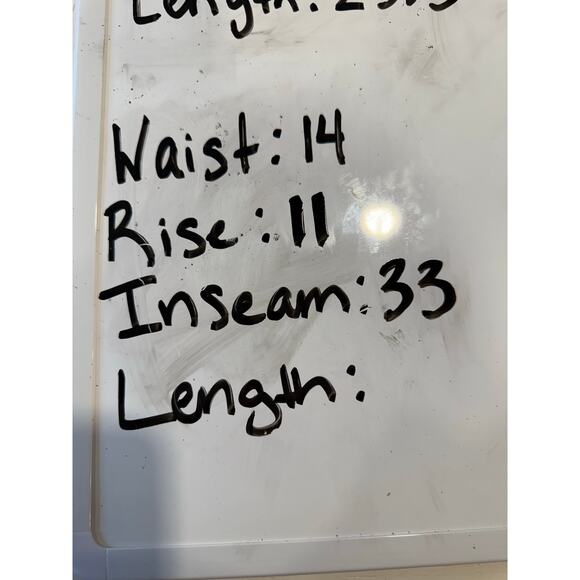 Length: 23.5
Waist: 14
Rise: 11
Inseam: 33
Length: